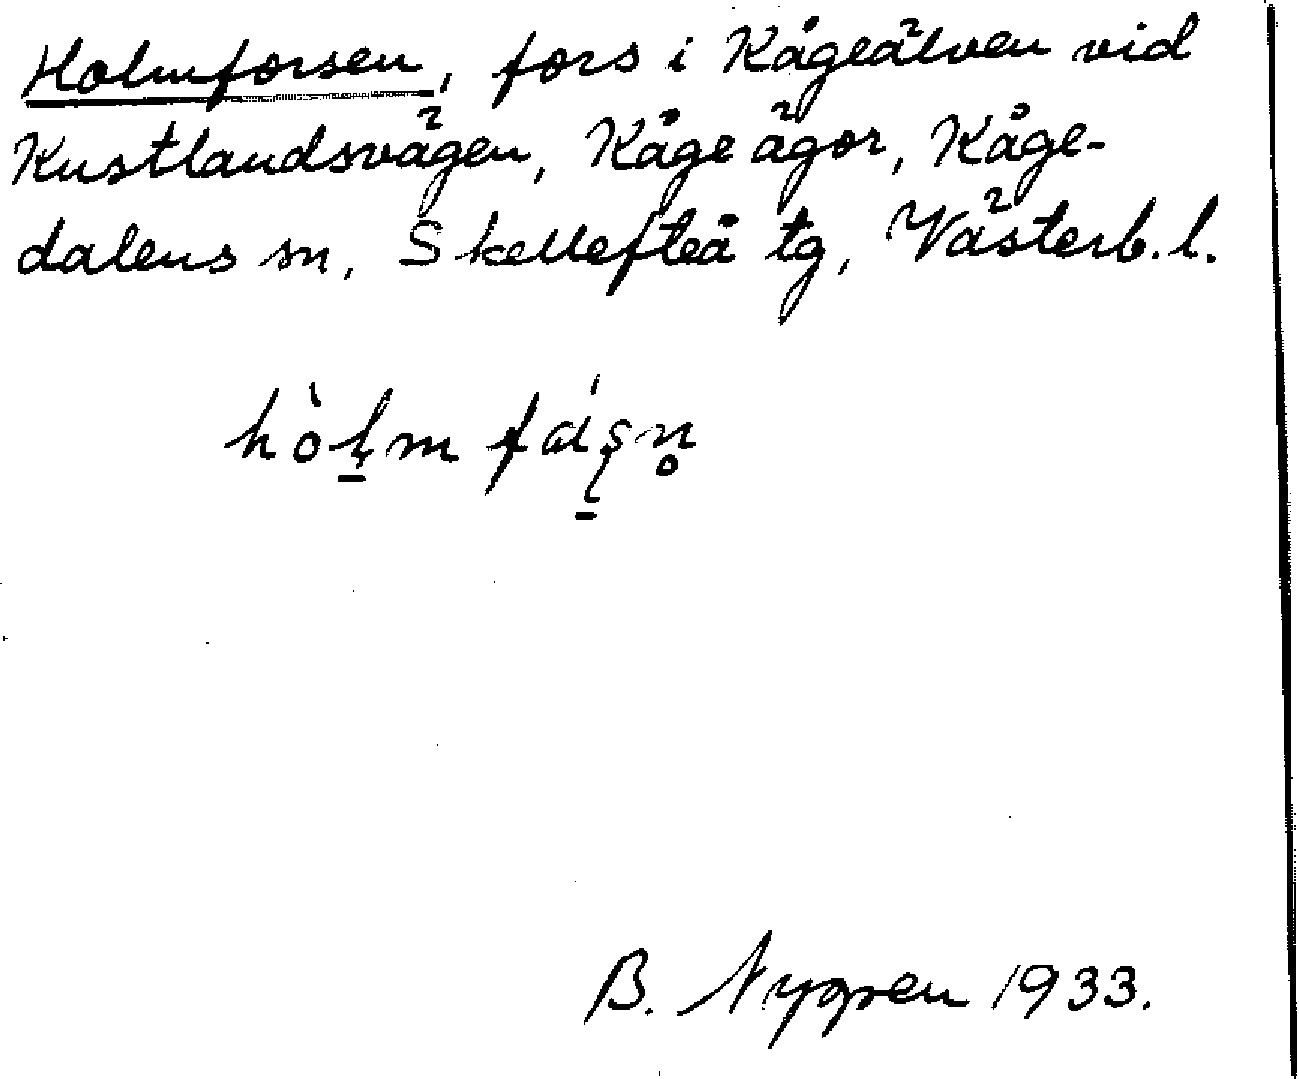 Holmforsen, fors i Kågeälven vid
Kustlandsvägen, Kåge ägor, Kåge-
dalens sn, Skellefteå tg, Västerb. l.
B. Nygren 1933.